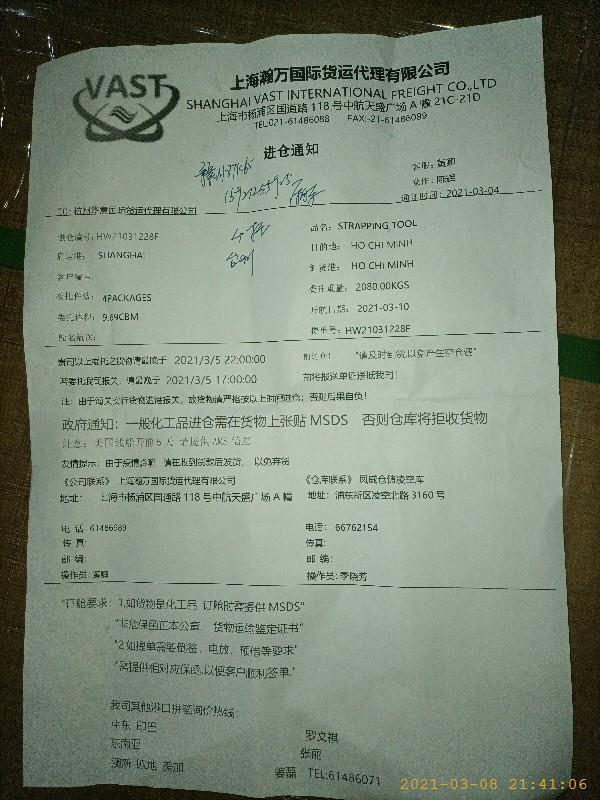 VAST
上海瀚万国际货运代理有限公司
SHANGHAI VAST INTERNATIONAL FREIGHT CO.,LTD
上海市杨浦区国道路118号中航天盛广场A幢21C-21D
TEL:021-61486088 FAX:-21-61486089
进仓通知
客服:
操作:
通知时间: 2021-03-04
TO: 杭州华意国际货运代理有限公司
进仓编号: HW21031228F
品名: STRAPPING TOOL
启运港: SHANGHAI
目的地: HO CHI MINH
客户编号:
卸货港: HO CHI MINH
委托件数: 4PACKAGES
委托重量: 2080.00KGS
委托体积: 9.69CBM
开航日期: 2021-03-10
船名航次:
提单号: HW21031228F
贵司以上委托之货物请最晚于 2021/3/5 22:00:00 前进仓! "请及时到货以免产生空仓费"
若委托我司报关, 请最晚于 2021/3/5 17:00:00 前将报送单证送抵我司!
注: 由于海关实行货物进港报关, 故货物请严格按以上时间进仓; 否则后果自负!
政府通知: 一般化工品进仓需在货物上张贴MSDS 否则仓库将拒收货物
注意: 美国线船开前5天 请提供 AMS 信息
友情提示: 由于疫情影响 请在收到货款后发货, 以免弃货
《公司联系》 上海瀚万国际货运代理有限公司
《仓库联系》 凤威仓储凌空库
地址: 上海市杨浦区国道路118号中航天盛广场A幢
地址: 浦东新区凌空北路3160号
电话: 61486989
电话: 66762154
传真:
传真:
邮编:
邮编:
操作员:
操作员: 季晓芳
"订舱要求: 1.如货物是化工品 订舱时需提供MSDS"
"非危保函正本公章, 货物运输鉴定证书"
"2.如提单需要倒签, 电放, 预借等要求"
"需提供相对应保函,以便客户顺利签单."
我司其他港口拼箱询价热线:
中东 印巴
罗文祺
东南亚
张丽
澳新 欧地 美加
姜磊 TEL:61486071
2021-03-08 21:41:06